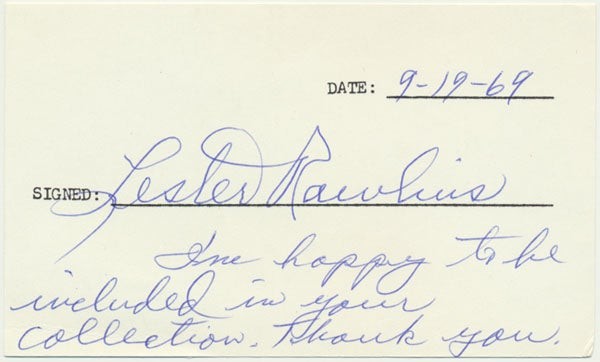 DATE: 9-19-69
SIGNED: Lester Rawlins
I'm happy to be
included in your
collection. Thank you.